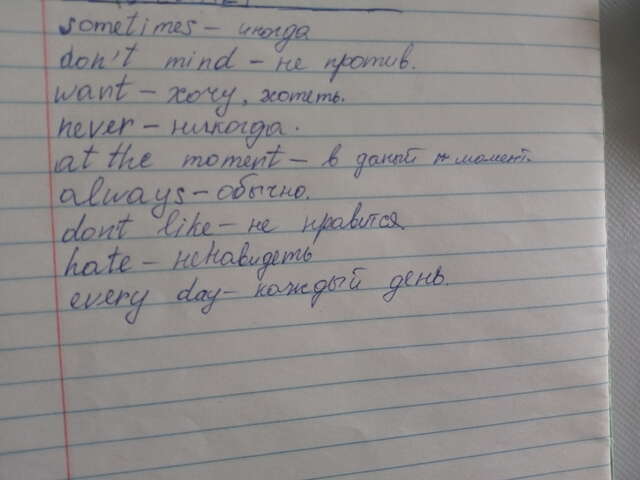 sometimes – иногда
don't mind – не против.
want – хочу, хотеть.
never – никогда.
at the moment – в даный момент.
always – обычно.
dont like – не нравится
hate – ненавидеть
every day – каждый день.